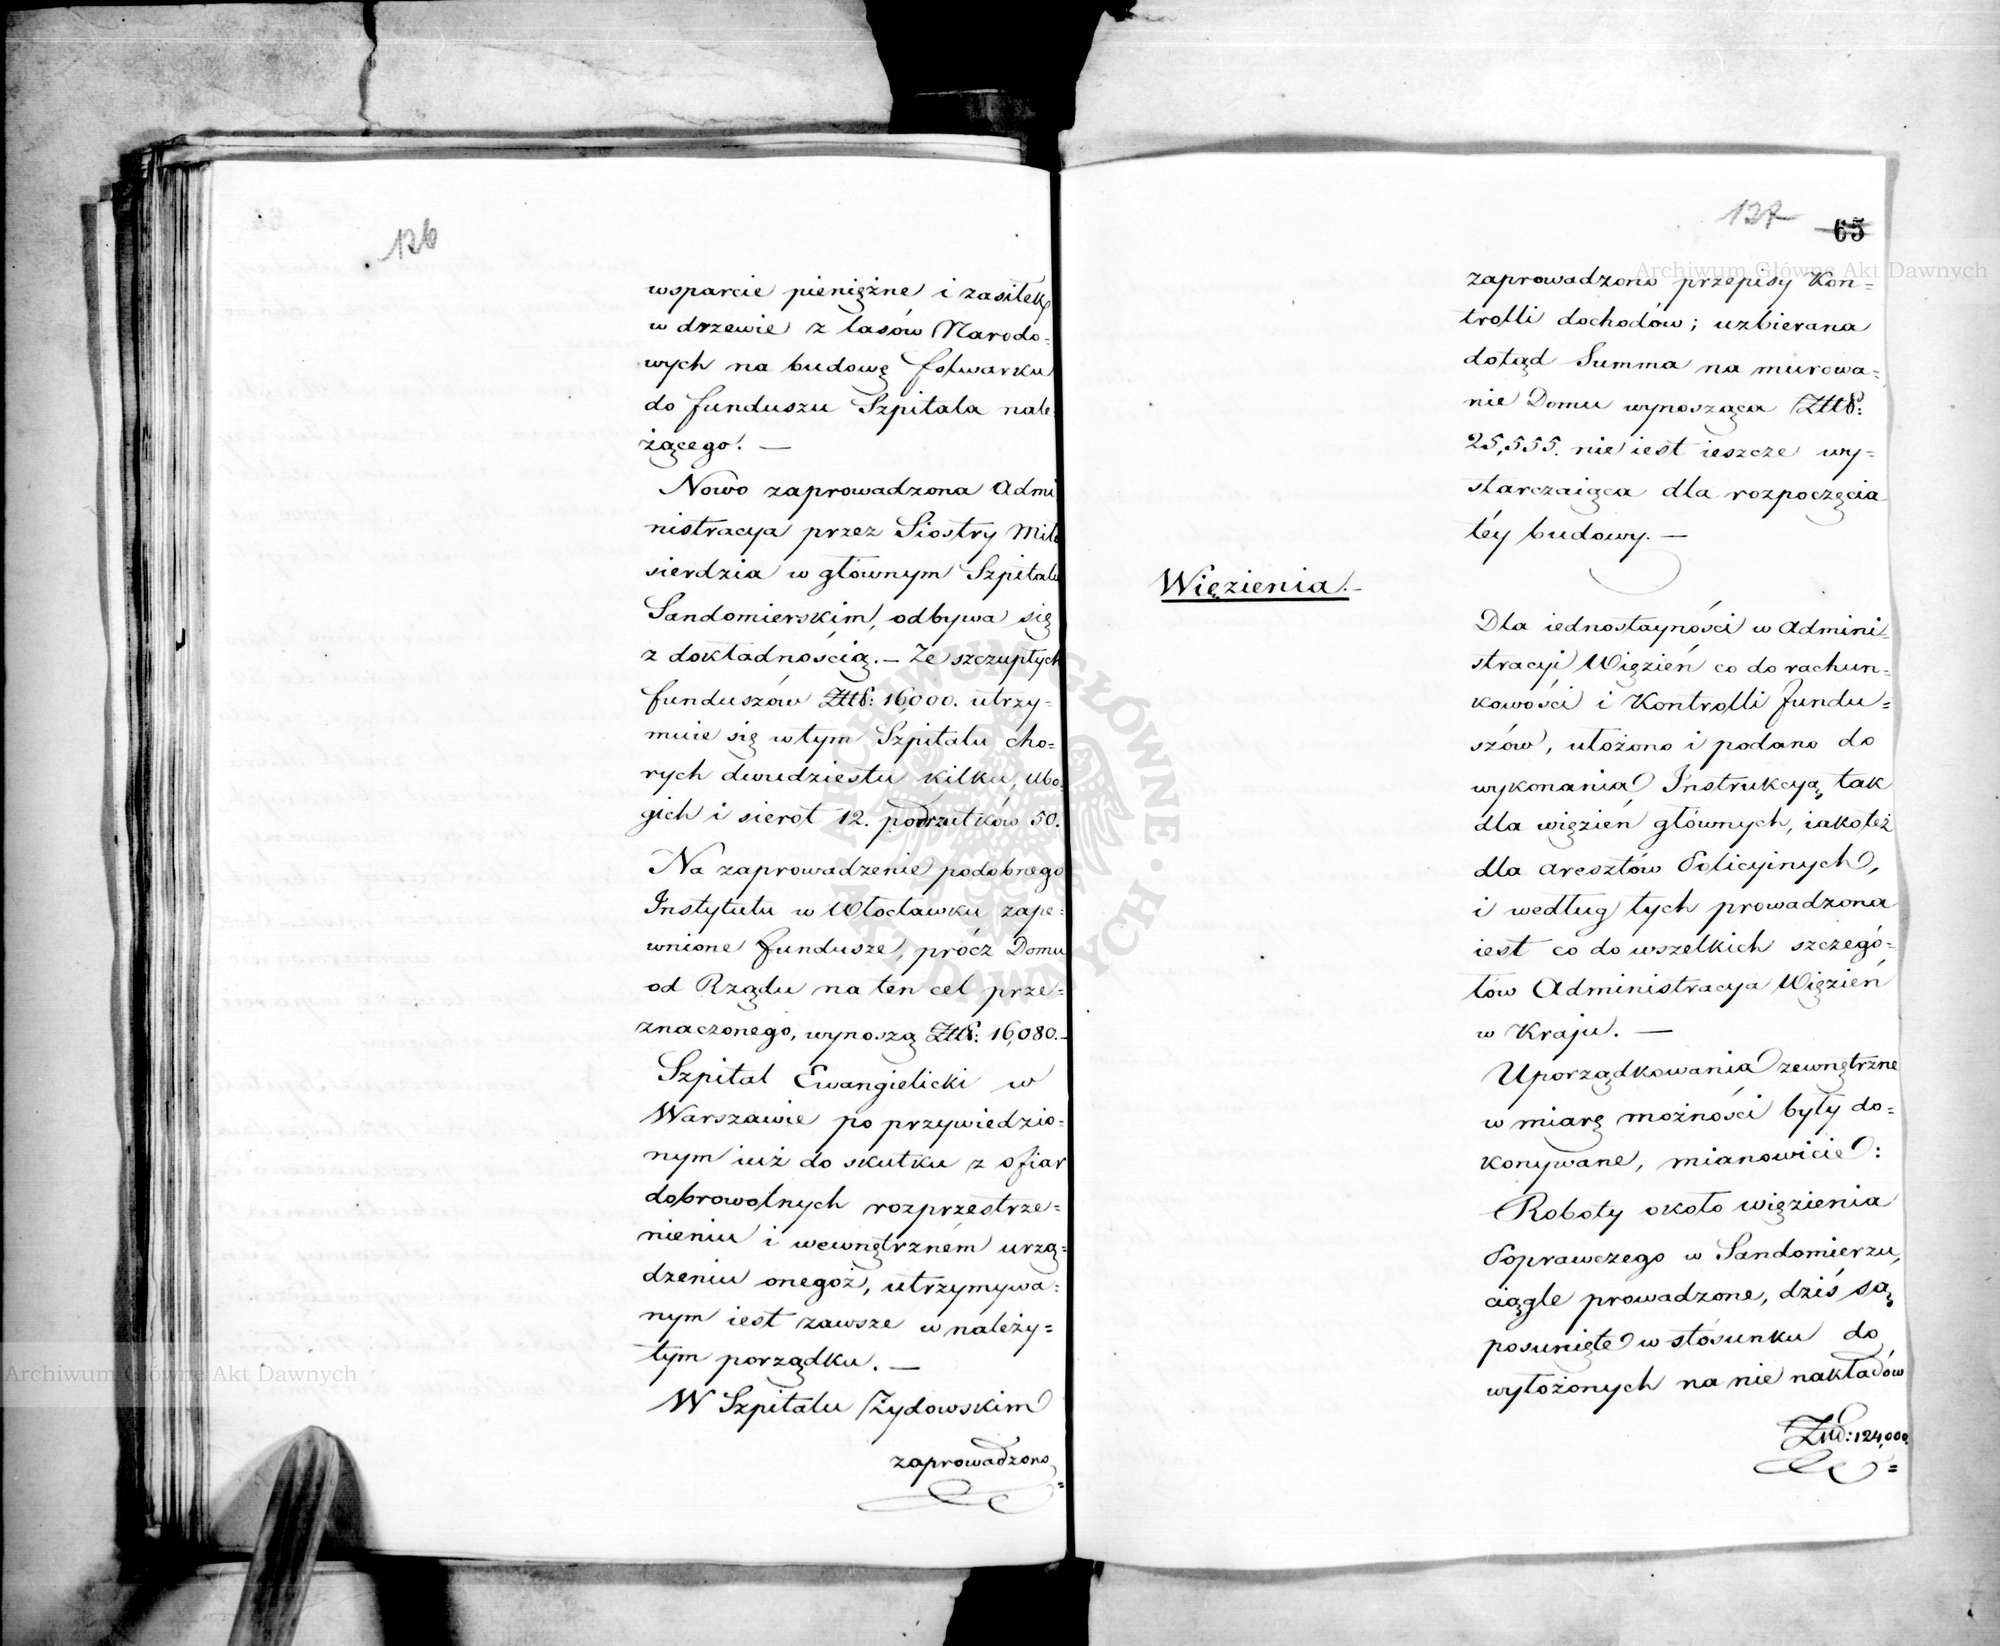 126
wsparcie pieniężne i zasiłek
w drzewie z lasów Narodo=
wych na budowę folwarku
do funduszu Szpitala nale=
żącego. —
Nowo zaprowadzona Admi
nistracya przez Siostry Miło
sierdzia w głównym Szpitalu
Sandomierskim, odbywa się
z dokładnością. — Ze szczupłych
funduszów Złtt: 16,000. utrzy=
muie się w tym Szpitalu cho=
rych dwudziestu kilku, ubo=
gich i sierot 12. podrzutków 50.
Na zaprowadzenie podobnego
Instytutu w Włocławku zape=
wnione fundusze, prócz Domu
od Rządu na ten cel prze=
znaczonego, wynoszą Złtt: 16,080. —
Szpital Ewangielicki w
Warszawie po przywiedzio=
nym iuż do skutku z ofiar
dobrowolnych rozprzestrze=
nieniu i wewnętrzném urzą=
dzeniu onegoż, utrzymywa=
nym iest zawsze w należy=
tym porządku. —
W Szpitalu Żydowskim
zaprowadzono=
127
65
zaprowadzono przepisy Kon=
trolli dochodów; uzbierana
dotąd Summa na murowa=
nie Domu wynosząca Złtt:
25,555. nie iest ieszcze wy=
starczaiąca dla rozpoczęcia
téy budowy. —
Więzienia. —
Dla iednostayności w Admini=
stracyi Więzień co do rachun=
kowości i Kontrolli fundu=
szów, ułożono i podano do
wykonania Instrukcyą, tak
dla więzień głównych, iako też
dla aresztów Policyinych,
i według tych prowadzona
iest co do wszelkich szczegó=
łów Administracya Więzień
w Kraju. —
Uporządkowania zewnętrzne
w miarę możności były do=
konywane, mianowicie:
Roboty około więzienia
Poprawczego w Sandomierzu,
ciągle prowadzone, dziś są
posunięte w stósunku do
wyłożonych na nie nakładów
124,000=
Archiwum Główne Akt Dawnych
Archiwum Główne Akt Dawnych
ARCHIWUM GŁÓWNE · AKT DAWNYCH ·